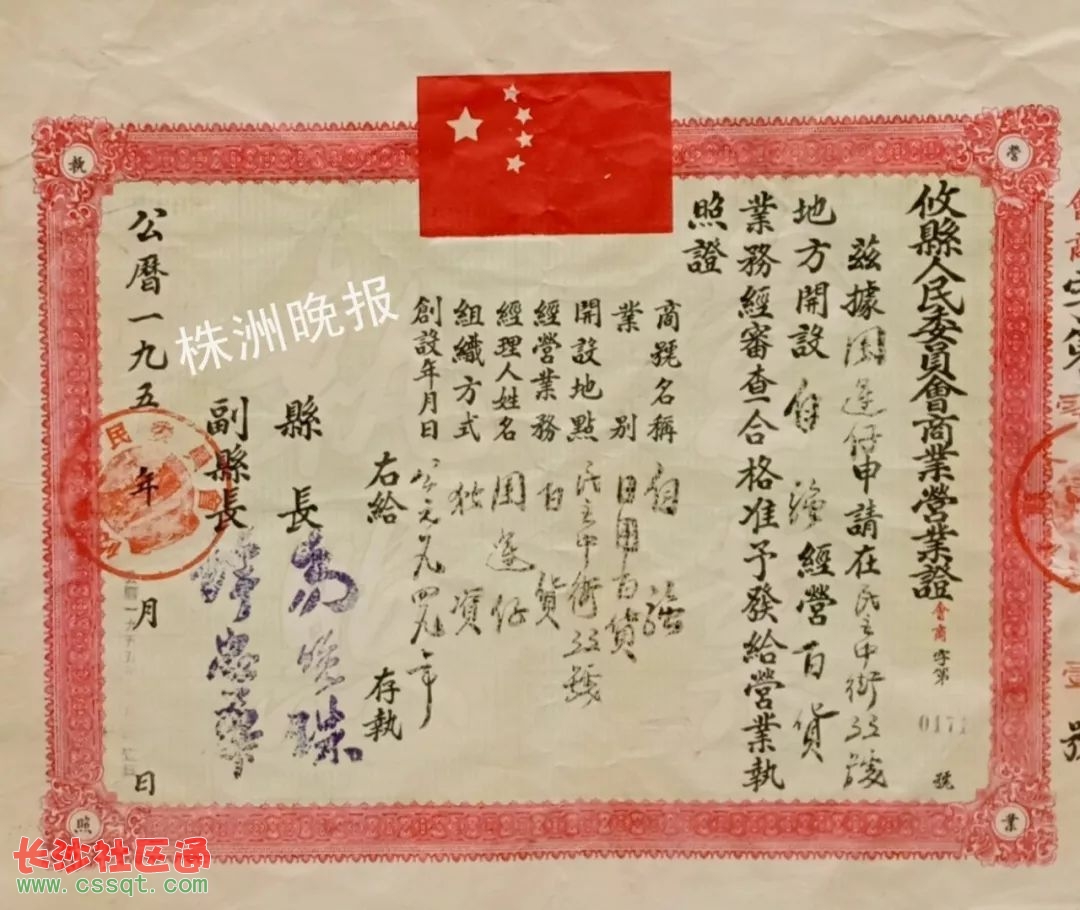 攸縣人民委員會商業營業證
會商字第0171號
茲據周運仔申請在民主中街33號
地方開設自強經營百貨
業務經審查合格准予發給營業執
照證
商號名稱 自強
業別 日用百貨
開設地點 民主中街33號
經營業務 百貨
經理人姓名 周運仔
組織方式 独資
創設年月日 公元一九四九年
右給
存執
縣長
副縣長
公曆一九五 年 月 日
營
業
執
照
株洲晚报
长沙社区通
www.cssqt.com